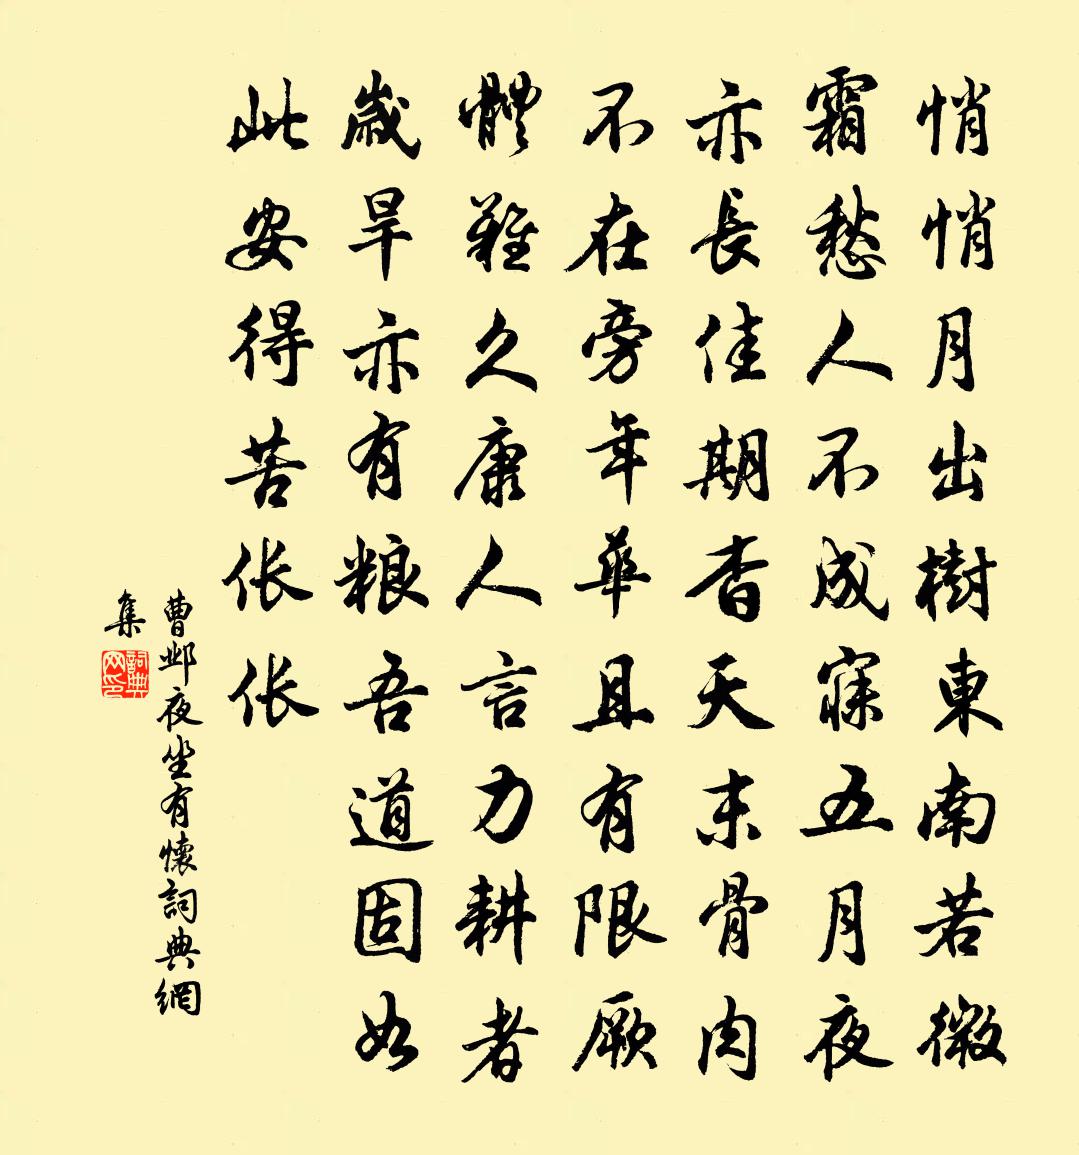 悄悄月出樹東南若微
霜愁人不成寐五月夜
亦長佳期杳天末骨肉
不在旁年華且有限厥
體難久康人言力耕者
歲旱亦有粮吾道固如
此安得苦伥伥
曹邺夜坐有懷詞典網
集
詞典网印